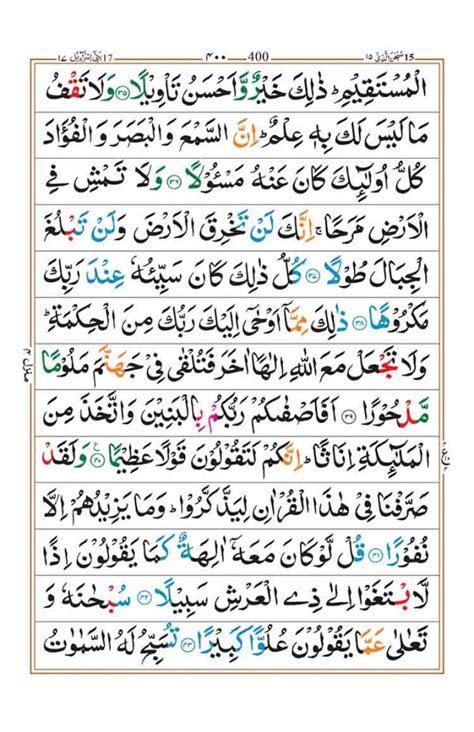 سُبْحٰنَ الَّذِيْٓ ١٥ 15 400 ٤٠٠ بَنِيْٓ اِسْرَآءِيْل ١٧ 17
الْمُسْتَقِيْمِ ؕ ذٰلِكَ خَيْرٌ وَّاَحْسَنُ تَاْوِيْلًا ۝٣٥ وَلَا تَقْفُ
مَا لَيْسَ لَكَ بِهٖ عِلْمٌ ؕ اِنَّ السَّمْعَ وَالْبَصَرَ وَالْفُؤَادَ
كُلُّ اُولٰٓئِكَ كَانَ عَنْهُ مَسْـُٔوْلًا ۝٣٦ وَلَا تَمْشِ فِي
الْاَرْضِ مَرَحًا ۚ اِنَّكَ لَنْ تَخْرِقَ الْاَرْضَ وَلَنْ تَبْلُغَ
الْجِبَالَ طُوْلًا ۝٣٧ كُلُّ ذٰلِكَ كَانَ سَيِّئُهٗ عِنْدَ رَبِّكَ
مَكْرُوْهًا ۝٣٨ ذٰلِكَ مِمَّاۤ اَوْحٰۤى اِلَيْكَ رَبُّكَ مِنَ الْحِكْمَةِ ؕ
وَلَا تَجْعَلْ مَعَ اللّٰهِ اِلٰهًا اٰخَرَ فَتُلْقٰى فِيْ جَهَنَّمَ مَلُوْمًا
مَّدْحُوْرًا ۝٣٩ اَفَاَصْفٰىكُمْ رَبُّكُمْ بِالْبَنِيْنَ وَاتَّخَذَ مِنَ
الْمَلٰٓئِكَةِ اِنَاثًا ؕ اِنَّكُمْ لَتَقُوْلُوْنَ قَوْلًا عَظِيْمًا ۝٤٠ وَلَقَدْ
صَرَّفْنَا فِيْ هٰذَا الْقُرْاٰنِ لِيَذَّكَّرُوْا ؕ وَمَا يَزِيْدُهُمْ اِلَّا
نُفُوْرًا ۝٤١ قُلْ لَّوْ كَانَ مَعَهٗۤ اٰلِهَةٌ كَمَا يَقُوْلُوْنَ اِذًا
لَّابْتَغَوْا اِلٰى ذِي الْعَرْشِ سَبِيْلًا ۝٤٢ سُبْحٰنَهٗ وَ
تَعٰلٰى عَمَّا يَقُوْلُوْنَ عُلُوًّا كَبِيْرًا ۝٤٣ تُسَبِّحُ لَهُ السَّمٰوٰتُ
منزل ٤